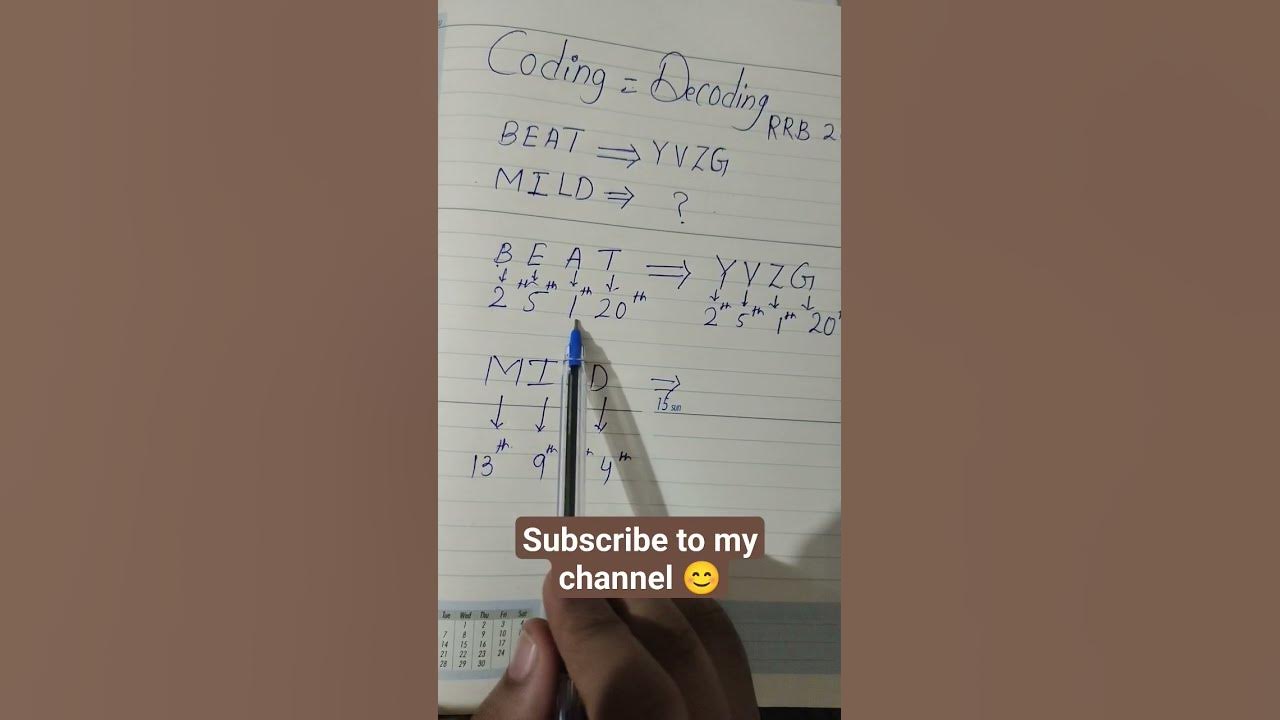 Coding = Decoding
RRB 2
BEAT ⇒ YVZG
MILD ⇒ ?
B E A T ⇒ Y V Z G
↓ ↓ ↓ ↓ ↓ ↓ ↓ ↓
2th 5th 1th 20th 2th 5th 1th 20
M I D ⇒
15 sun
↓ ↓ ↓
13th 9th 4th
Subscribe to my
channel 😊
Tue Wed Thu Fri Sat
1 2 3 4
7 8 9 10
14 15 16 17
21 22 23 24
28 29 30